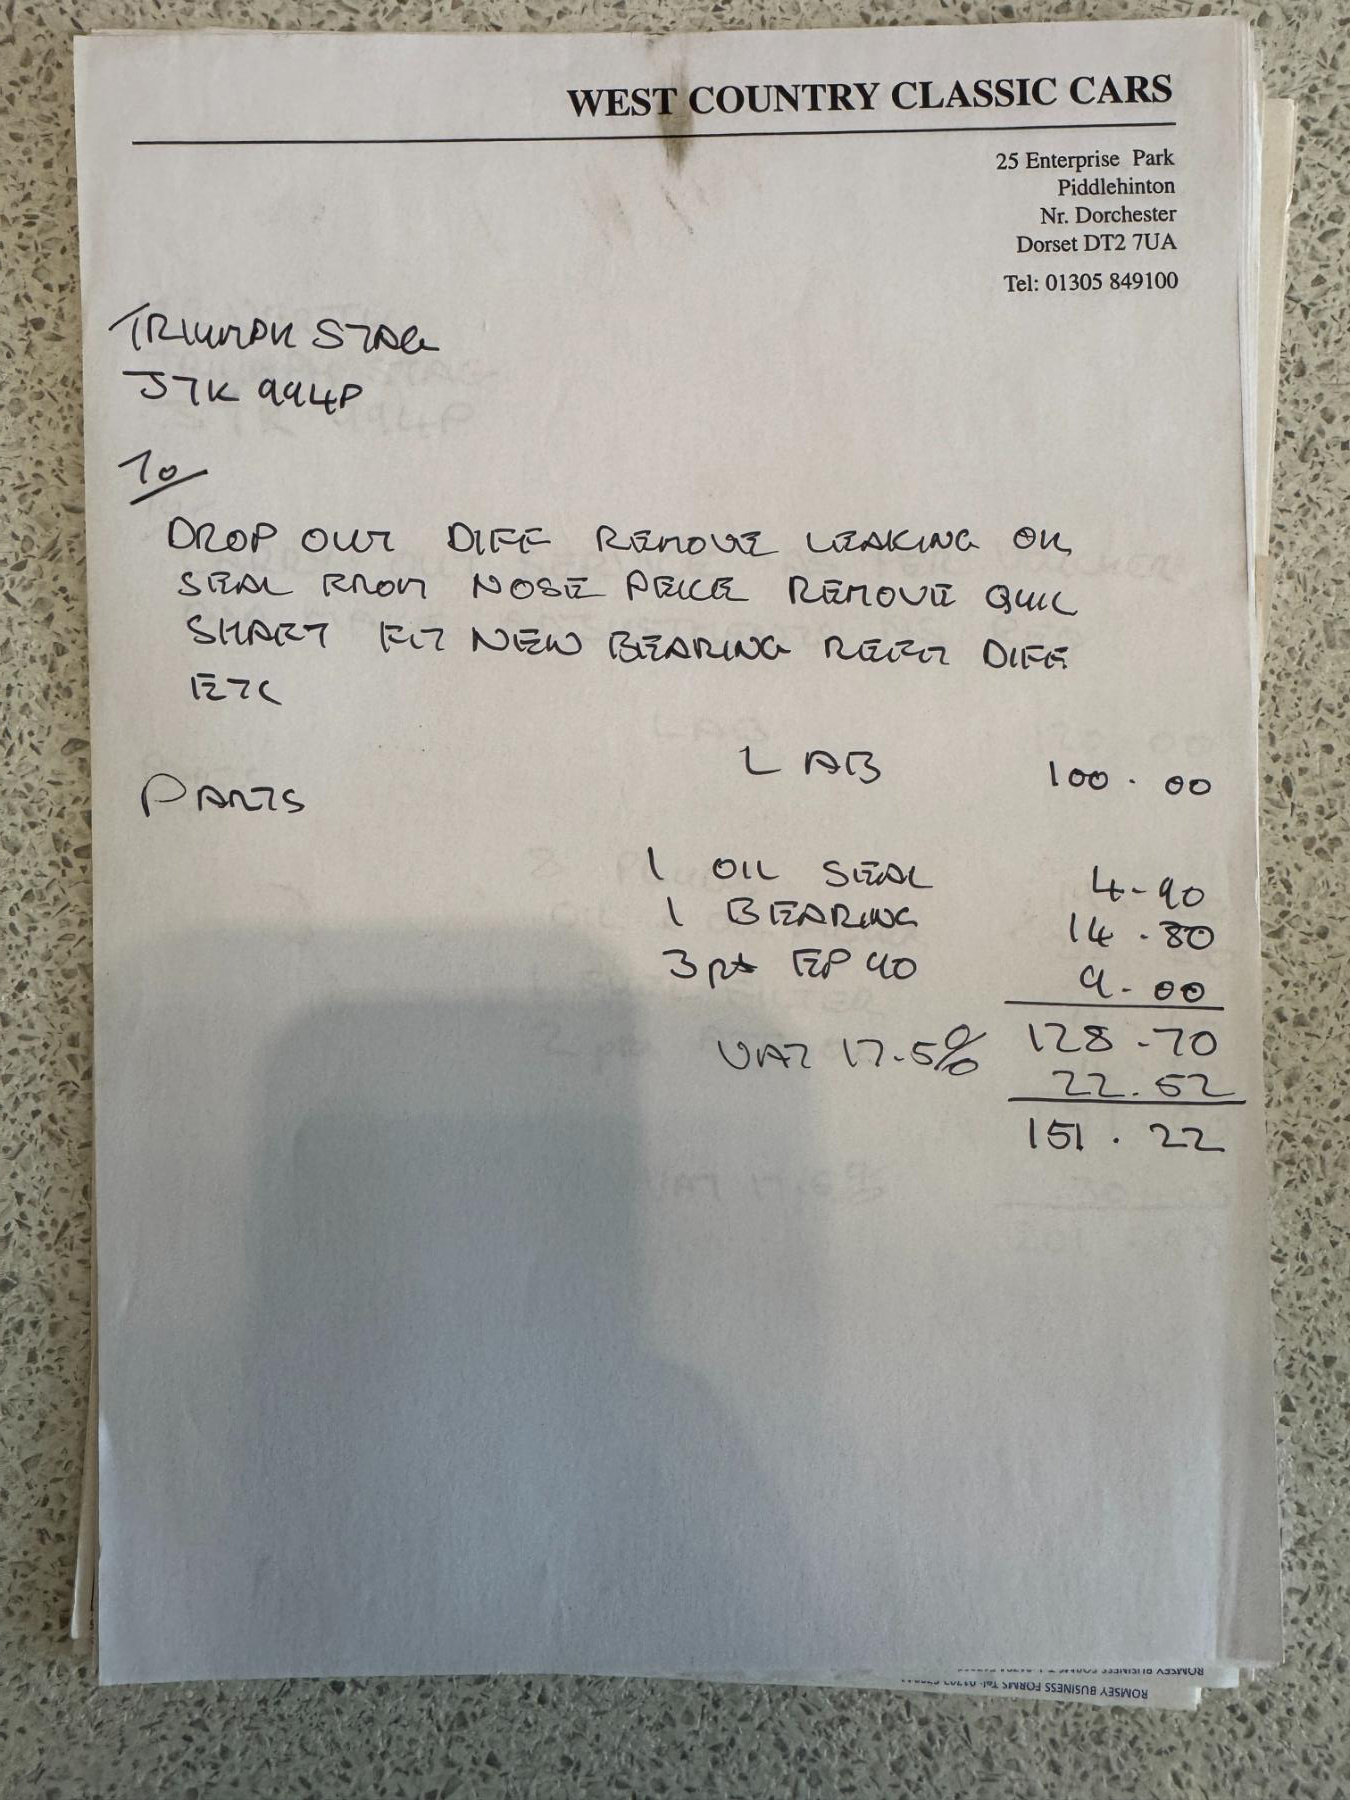 WEST COUNTRY CLASSIC CARS
25 Enterprise Park
Piddlehinton
Nr. Dorchester
Dorset DT2 7UA
Tel: 01305 849100
TRIUMPH STAG
JTK 994P
To
DROP OUT DIFF REMOVE LEAKING OIL
SEAL FROM NOSE PEICE REMOVE QUIL
SHAFT FIT NEW BEARING REFIT DIFF
ETC
LAB 100.00
PARTS
1 OIL SEAL 4-90
1 BEARING 14.80
3 pt EP 90 9-00
128-70
VAT 17.5% 22.52
151.22
ROMSEY BUSINESS FORMS
ROMSEY BUSINESS FORMS Tel: